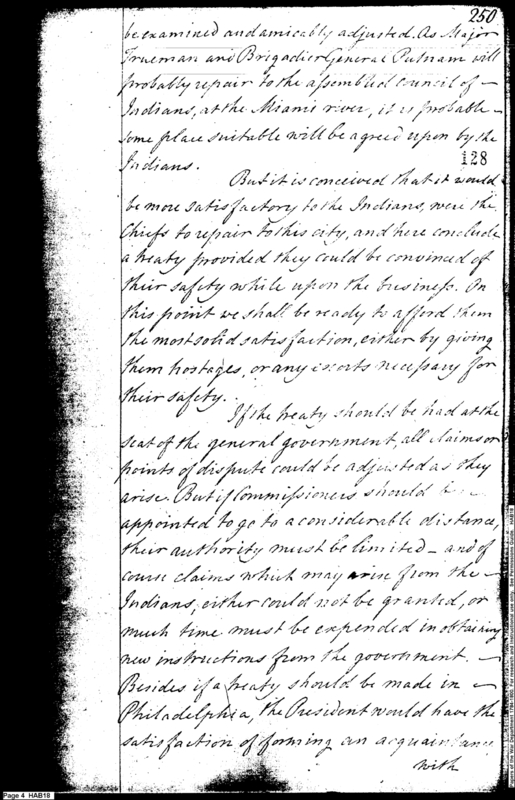 250
be examined and amicably adjusted. As Major
Trueman and Brigadier General Putnam will
probably repair to the assembled Council of –
Indians, at the Miami river, it is probable –
some place suitable will be agreed upon by the
Indians.
128
But it is conceived that it would
be more satisfactory to the Indians, were the
Chiefs to repair to this city, and here conclude
a treaty provided they could be convinced of
their safety while upon the business. On
this point we shall be ready to afford them
the most solid satisfaction, either by giving
them hostages, or any escorts necessary for
their safety.
If the treaty should be had at the
seat of the general government, all claims or
points of dispute could be adjusted as they
arise. But if Commissioners should be
appointed to go to a considerable distance,
their authority must be limited – and of
course claims which may arise from the –
Indians, either could not be granted, or
much time must be expended in obtaining
new instructions from the government. –
Besides if a treaty should be made in –
Philadelphia, the President would have the
satisfaction of forming an acquaintance
with
Page 4 HAB18